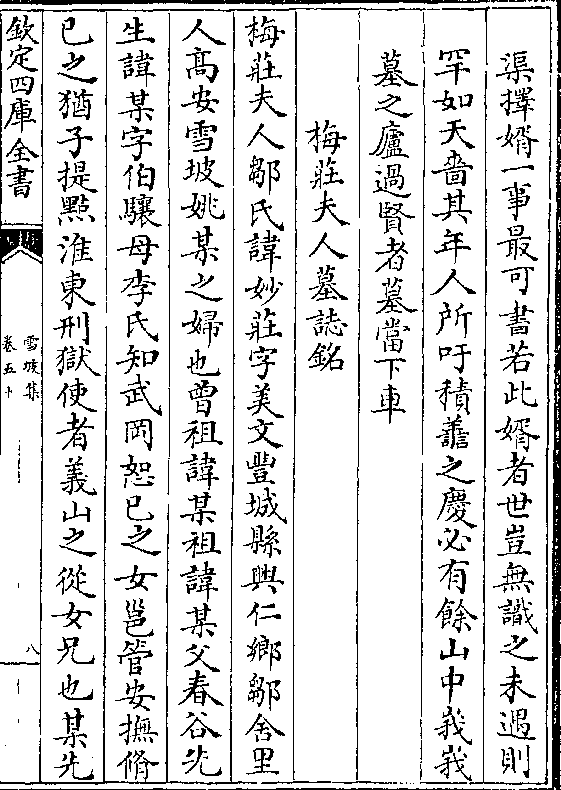 渠擇婿一事最可書若此婿者世豈無識之未遇則
罕如天嗇其年人所吁積譱之慶必有餘山中峩峩
墓之廬過賢者墓當下車
梅莊夫人墓誌銘
梅莊夫人鄒氏諱妙莊字美文豐城縣興仁鄉鄒舍里
人髙安雪坡姚某之婦也曾祖諱某祖諱某父春谷先
生諱某字伯驤母李氏知武岡恕已之女邕管安撫脩
已之猶子提㸃淮東刑獄使者義山之從女兄也某先
欽定四庫全書
雪坡集
卷五十
八